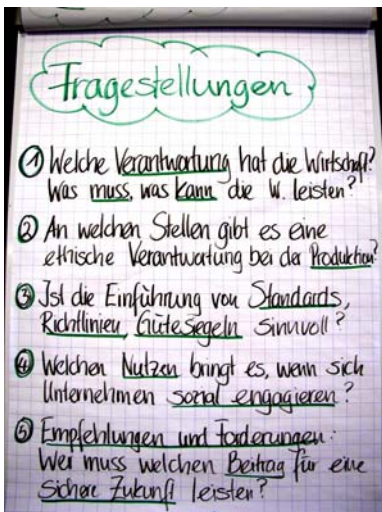 Fragestellungen
① Welche Verantwortung hat die Wirtschaft?
Was muss, was kann die W. leisten?
② An welchen Stellen gibt es eine
ethische Verantwortung bei der Produktion?
③ Ist die Einführung von Standards,
Richtlinien, Gütesiegeln sinnvoll?
④ Welchen Nutzen bringt es, wenn sich
Unternehmen sozial engagieren?
⑤ Empfehlungen und Forderungen:
Wer muss welchen Beitrag für eine
sichere Zukunft leisten?